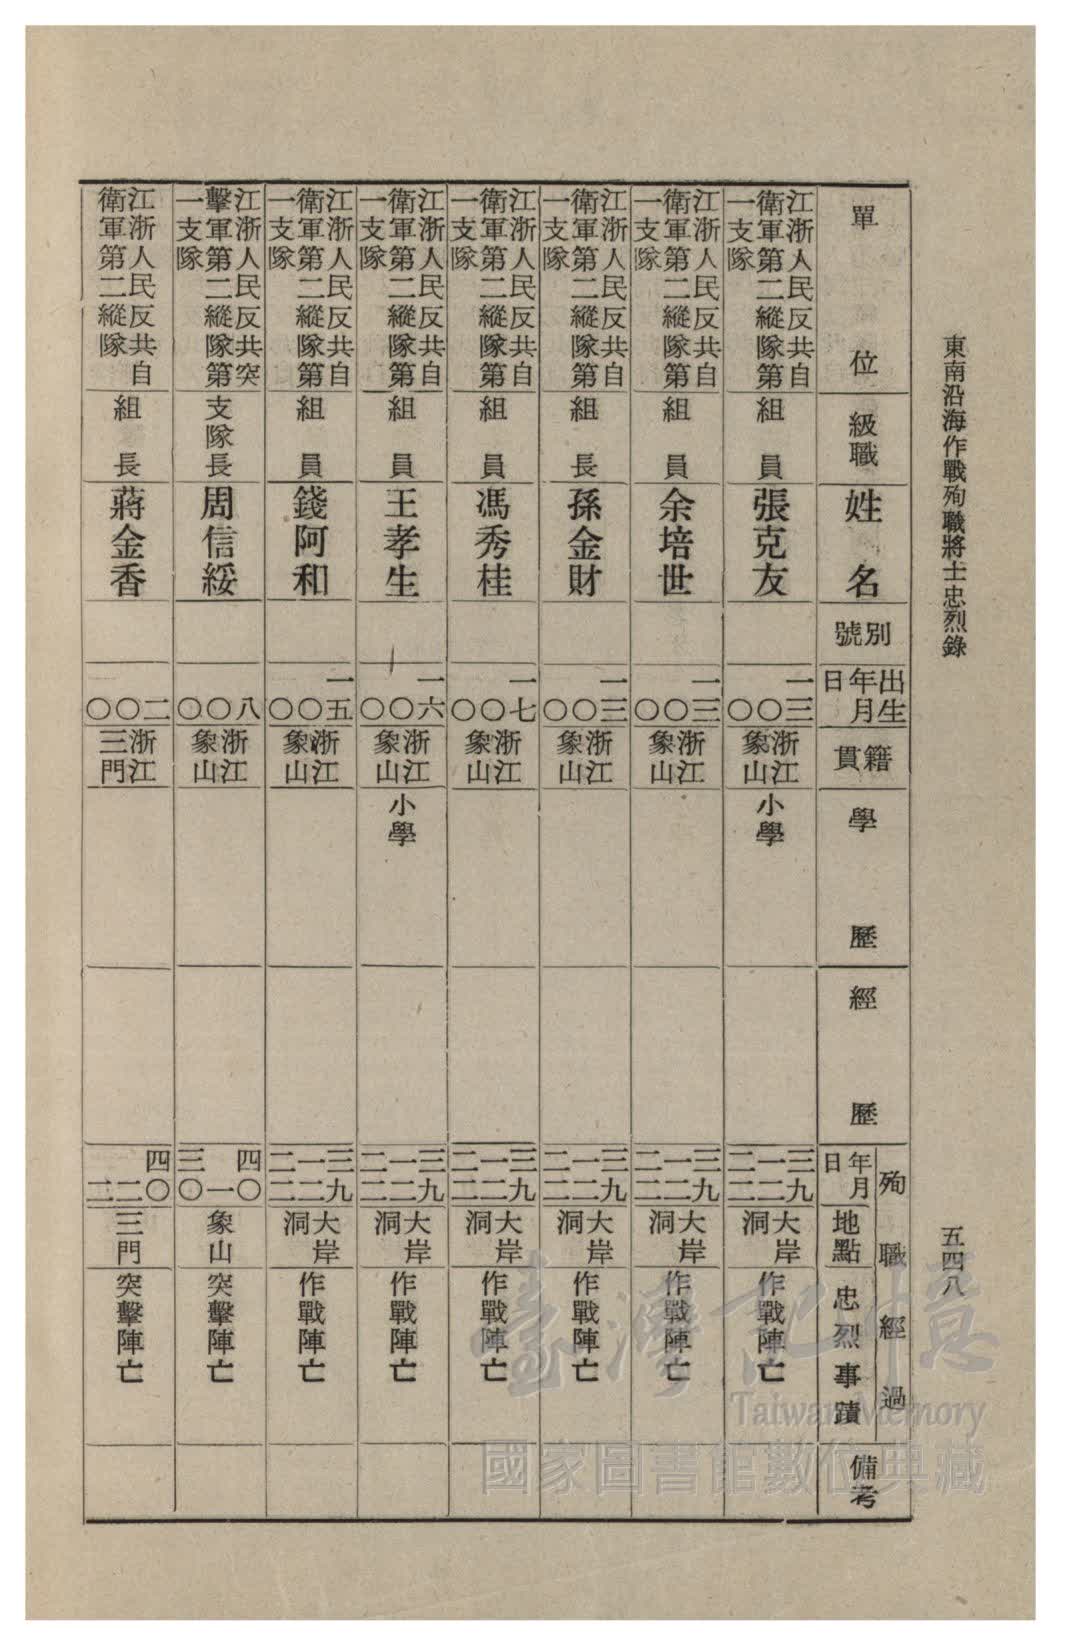 東南沿海作戰殉職將士忠烈錄
五四八
單位
級職
姓名
別號
出生
年月
日
籍貫
學歷
經歷
殉職經過
年月
日
地點
忠烈事蹟
備考
江浙人民反共自
衛軍第二縱隊第
一支隊
組員
張克友
一三
〇
〇
浙江
象山
小學
三九
一二
二二
大岸
洞
作戰陣亡
江浙人民反共自
衛軍第二縱隊第
一支隊
組員
余培世
一三
〇
〇
浙江
象山
三九
一二
二二
大岸
洞
作戰陣亡
江浙人民反共自
衛軍第二縱隊第
一支隊
組長
孫金財
一三
〇
〇
浙江
象山
三九
一二
二二
大岸
洞
作戰陣亡
江浙人民反共自
衛軍第二縱隊第
一支隊
組員
馮秀桂
一七
〇
〇
浙江
象山
三九
一二
二二
大岸
洞
作戰陣亡
江浙人民反共自
衛軍第二縱隊第
一支隊
組員
王孝生
一六
〇
〇
浙江
象山
小學
三九
一二
二二
大岸
洞
作戰陣亡
江浙人民反共自
衛軍第二縱隊第
一支隊
組員
錢阿和
一五
〇
〇
浙江
象山
三九
一二
二二
大岸
洞
作戰陣亡
江浙人民反共突
擊軍第二縱隊第
一支隊
支隊長
周信綏
八
〇
〇
浙江
象山
四〇
一
三〇
象山
突擊陣亡
江浙人民反共自
衛軍第二縱隊
組長
蔣金香
二
〇
〇
浙江
三門
四〇
二
二
三門
突擊陣亡
臺灣記憶
Taiwan Memory
國家圖書館數位典藏